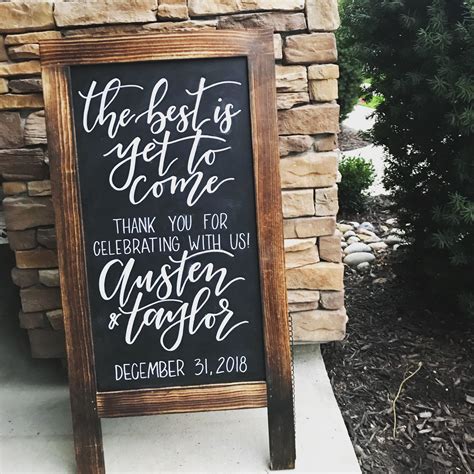 the best is
yet to
come
THANK YOU FOR
CELEBRATING WITH US!
Austen
& taylor
DECEMBER 31, 2018